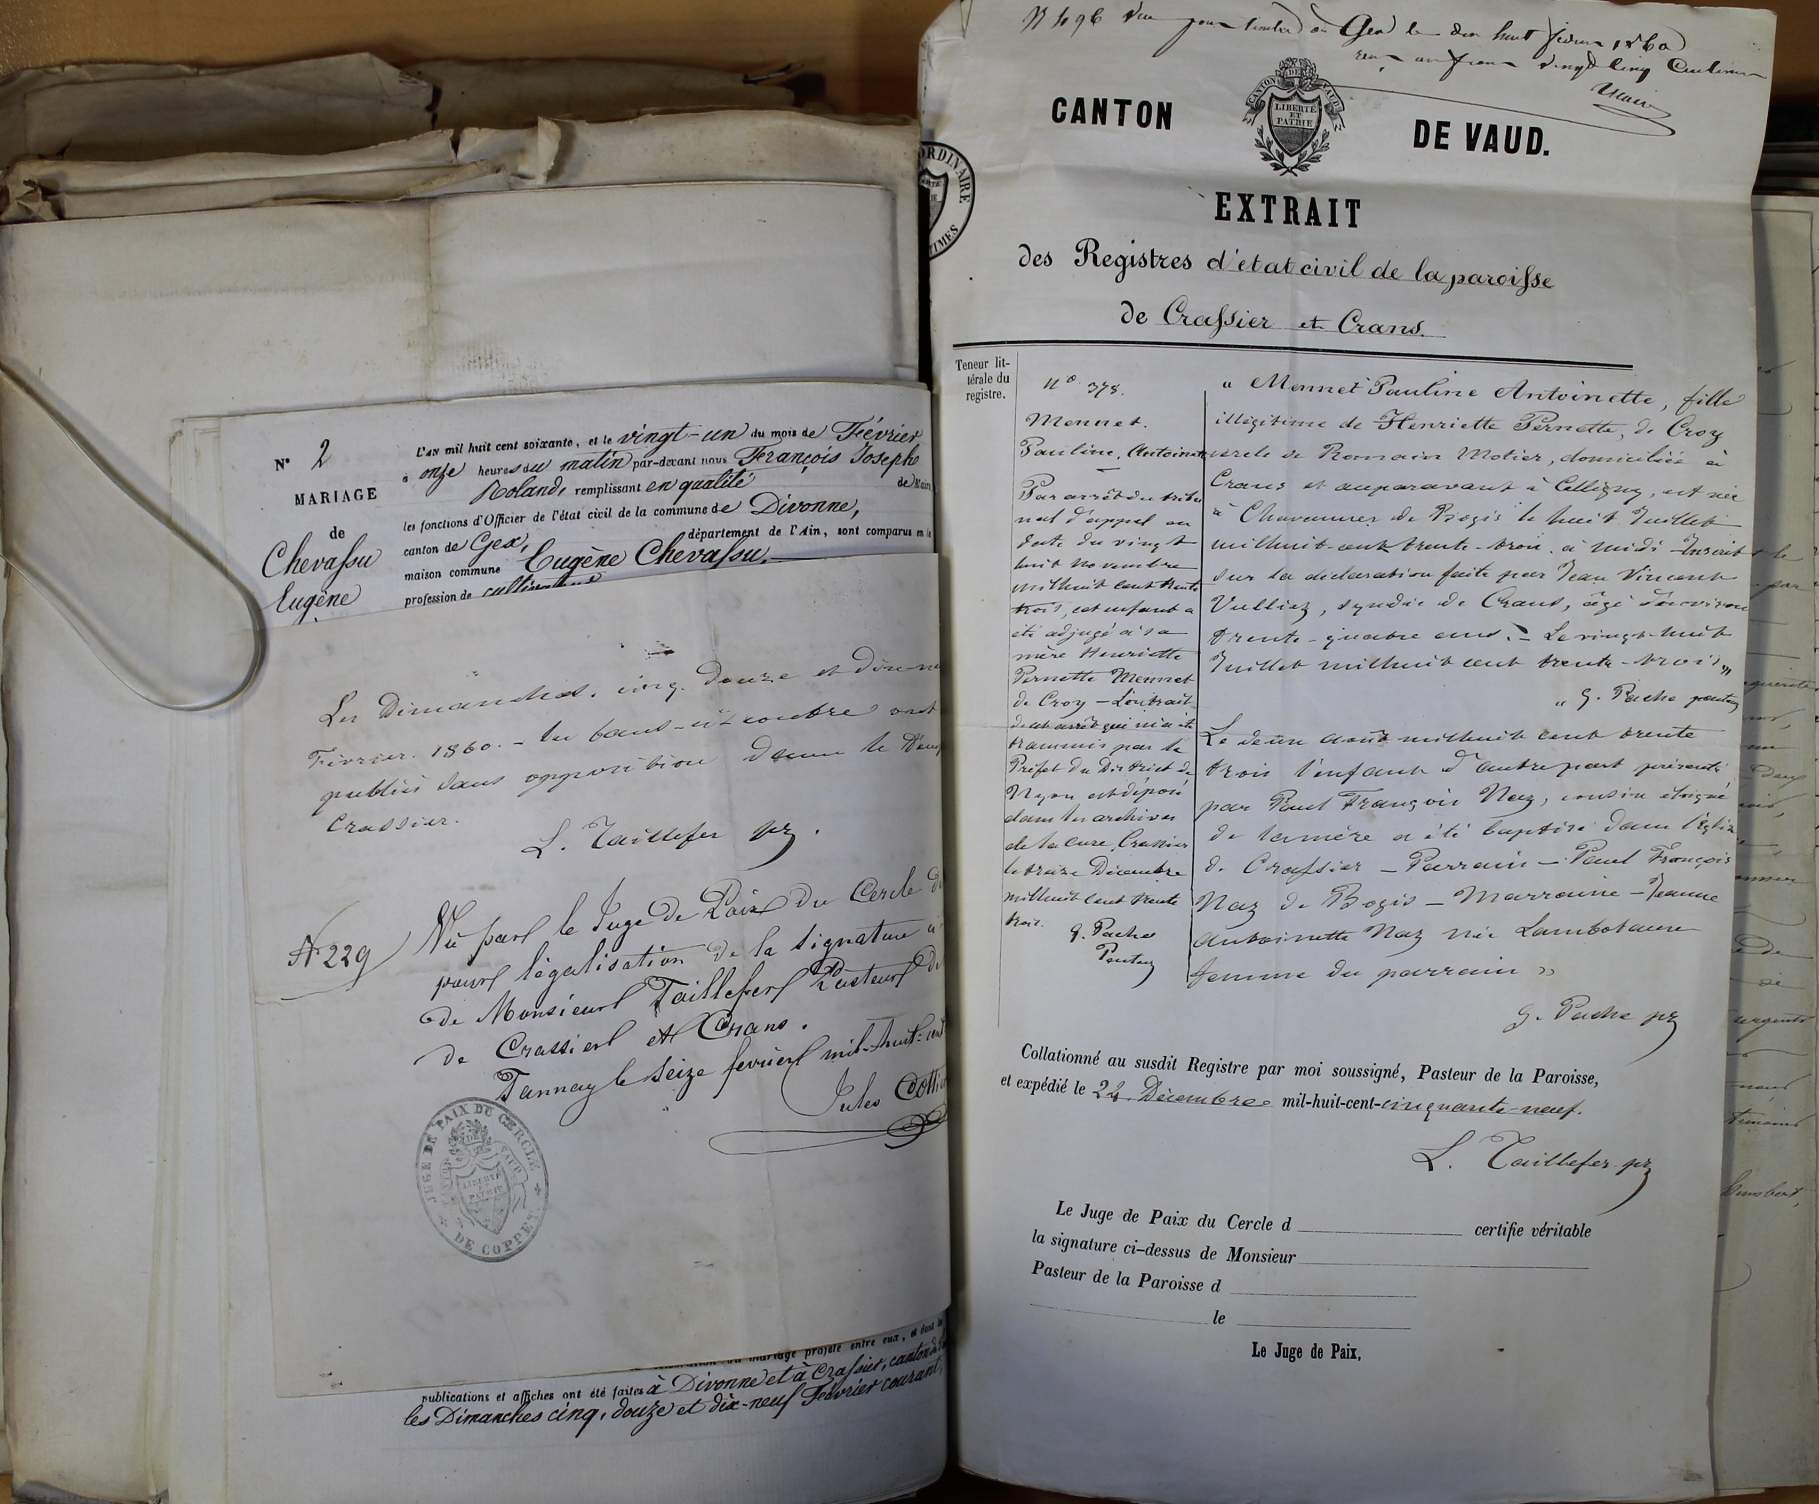 N° 2
MARIAGE
de
Chevassu
Eugène
L'an mil huit cent soixante, et le vingt-un du mois de Février
à onze heures du matin par-devant nous François Joseph
Roland, remplissant en qualité de Maire
les fonctions d'Officier de l'état civil de la commune de Divonne,
canton de Gex, département de l'Ain, sont comparus en la
maison commune Eugène Chevassu,
profession de cultivateur
Les Dimanches, cinq, douze et dix-ne
Février 1860. – les bans ont
publiés sans opposition dans le
Crassier.
L. Taillefer pr.
N 229
Vu par le Juge de Paix du Cercle de
pour légalisation de la signature
de Monsieur Taillefer Pasteur
de Crassier et Crans.
Tannay le seize février mil-huit-cent
Jules Cottier
JUGE DE PAIX DU CERCLE
CANTON DE VAUD
LIBERTÉ
ET
PATRIE
DE COPPET
mariage projeté entre eux, et dont les
publications et affiches ont été faites à Divonne et à Crassier, canton de
les Dimanches cinq, douze et dix-neuf Février courant,
ORDINAIRE
TIMES
N 496 Vu pour timbre à Gex le dix huit février 1860
reçu un franc vingt cinq Centimes
CANTON DE VAUD
LIBERTÉ
ET
PATRIE
CANTON DE VAUD.
EXTRAIT
des Registres d'état civil de la paroisse
de Crassier et Crans.
Teneur lit-
térale du
registre.
N° 378.
Mennet.
Pauline, Antoinette
Par arrêt du tribu
nal d'appel en
date du vingt
huit novembre
mil huit cent trente
trois, cet enfant a
été adjugé à sa
mère Henriette
Pernette Mennet
de Croy – L'extrait
de cet arrêt qui m'a été
transmis par le
Préfet du District de
Nyon est déposé
dans les archives
de la cure, Crassier
le treize Décembre
mil huit cent trente
trois.
G. Pache
Pasteur
" Mennet Pauline Antoinette, fille
illégitime de Henriette Pernette, de Croy
cercle de Romain Motier, domiciliée à
Crans et auparavant à Céligny, est née
à Chavannes de Bogis le huit Juillet
mil huit cent trente-trois à midi – Inscrit
sur la déclaration faite par Jean Vincent
Vulliez, syndic de Crans, âgé d'environ
trente-quatre ans. – Le vingt-huit
Juillet mil huit cent trente-trois "
" G. Pache pasteur
Le deux août mil huit cent trente
trois l'enfant d'autre part présenté
par Paul François Naz, cousin éloigné
de la mère a été baptisé dans l'église
de Crassier – Parrain – Paul François
Naz de Bogis – Marraine – Jeanne
Antoinette Naz née
femme du parrain "
G. Pache pr
Collationné au susdit Registre par moi soussigné, Pasteur de la Paroisse,
et expédié le 24 Décembre mil-huit-cent-cinquante-neuf.
L. Taillefer pr
Le Juge de Paix du Cercle d certifie véritable
la signature ci-dessus de Monsieur
Pasteur de la Paroisse d
le
Le Juge de Paix,